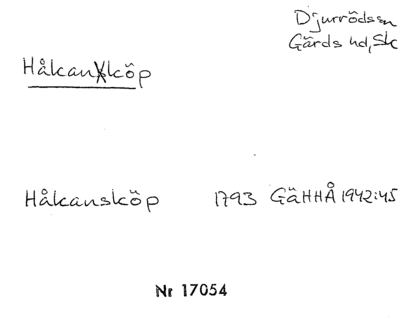 Djurröds sn
Gärds hd, Sk
Håkansköp
Håkansköp 1793 GäHHÅ 1942:45
Nr 17054